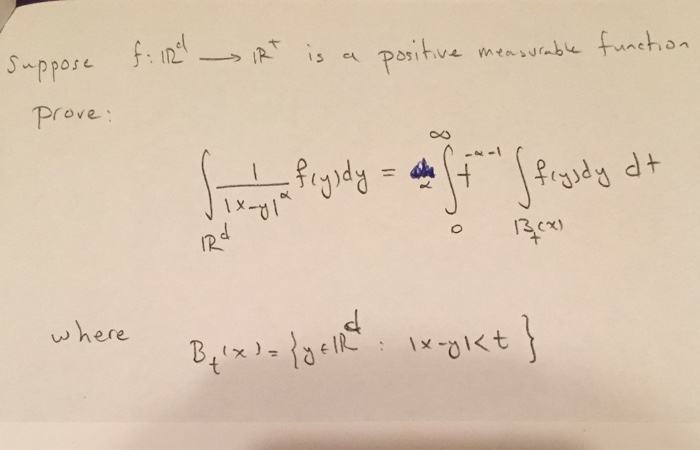 Suppose f: ℝ^d → ℝ^+ is a positive measurable function
Prove:
∫_{ℝ^d} 1/|x-y|^α f(y)dy = α ∫_0^∞ t^{-α-1} ∫_{B_t(x)} f(y)dy dt
where B_t(x) = {y ∈ ℝ^d : |x-y| < t }